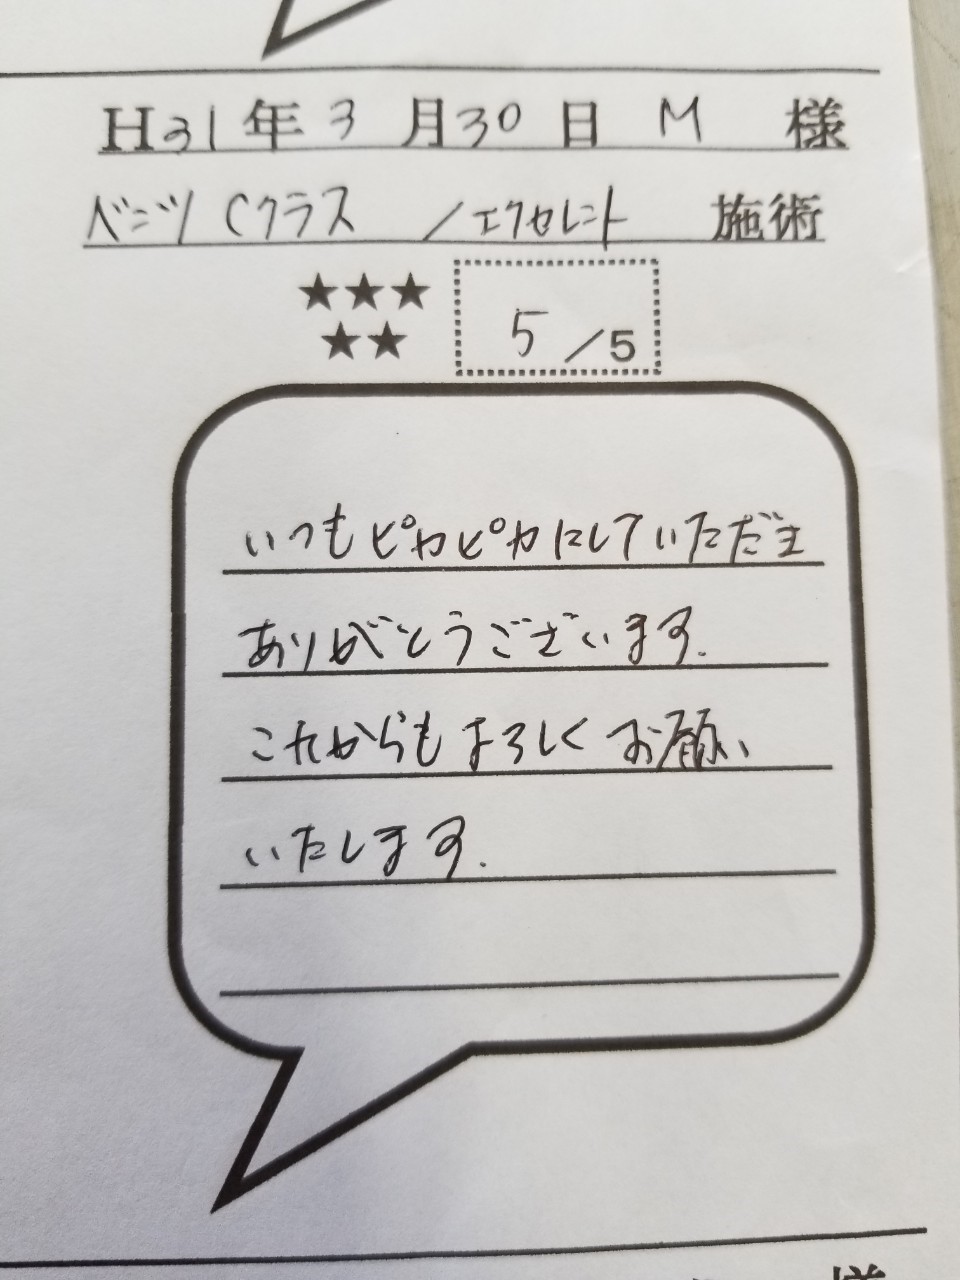 H31年3月30日 M 様
ベンツ Cクラス /エクセレント 施術
★★★
★★
5/5
いつもピカピカにしていただき
ありがとうございます.
これからもよろしくお願い
いたします.
様